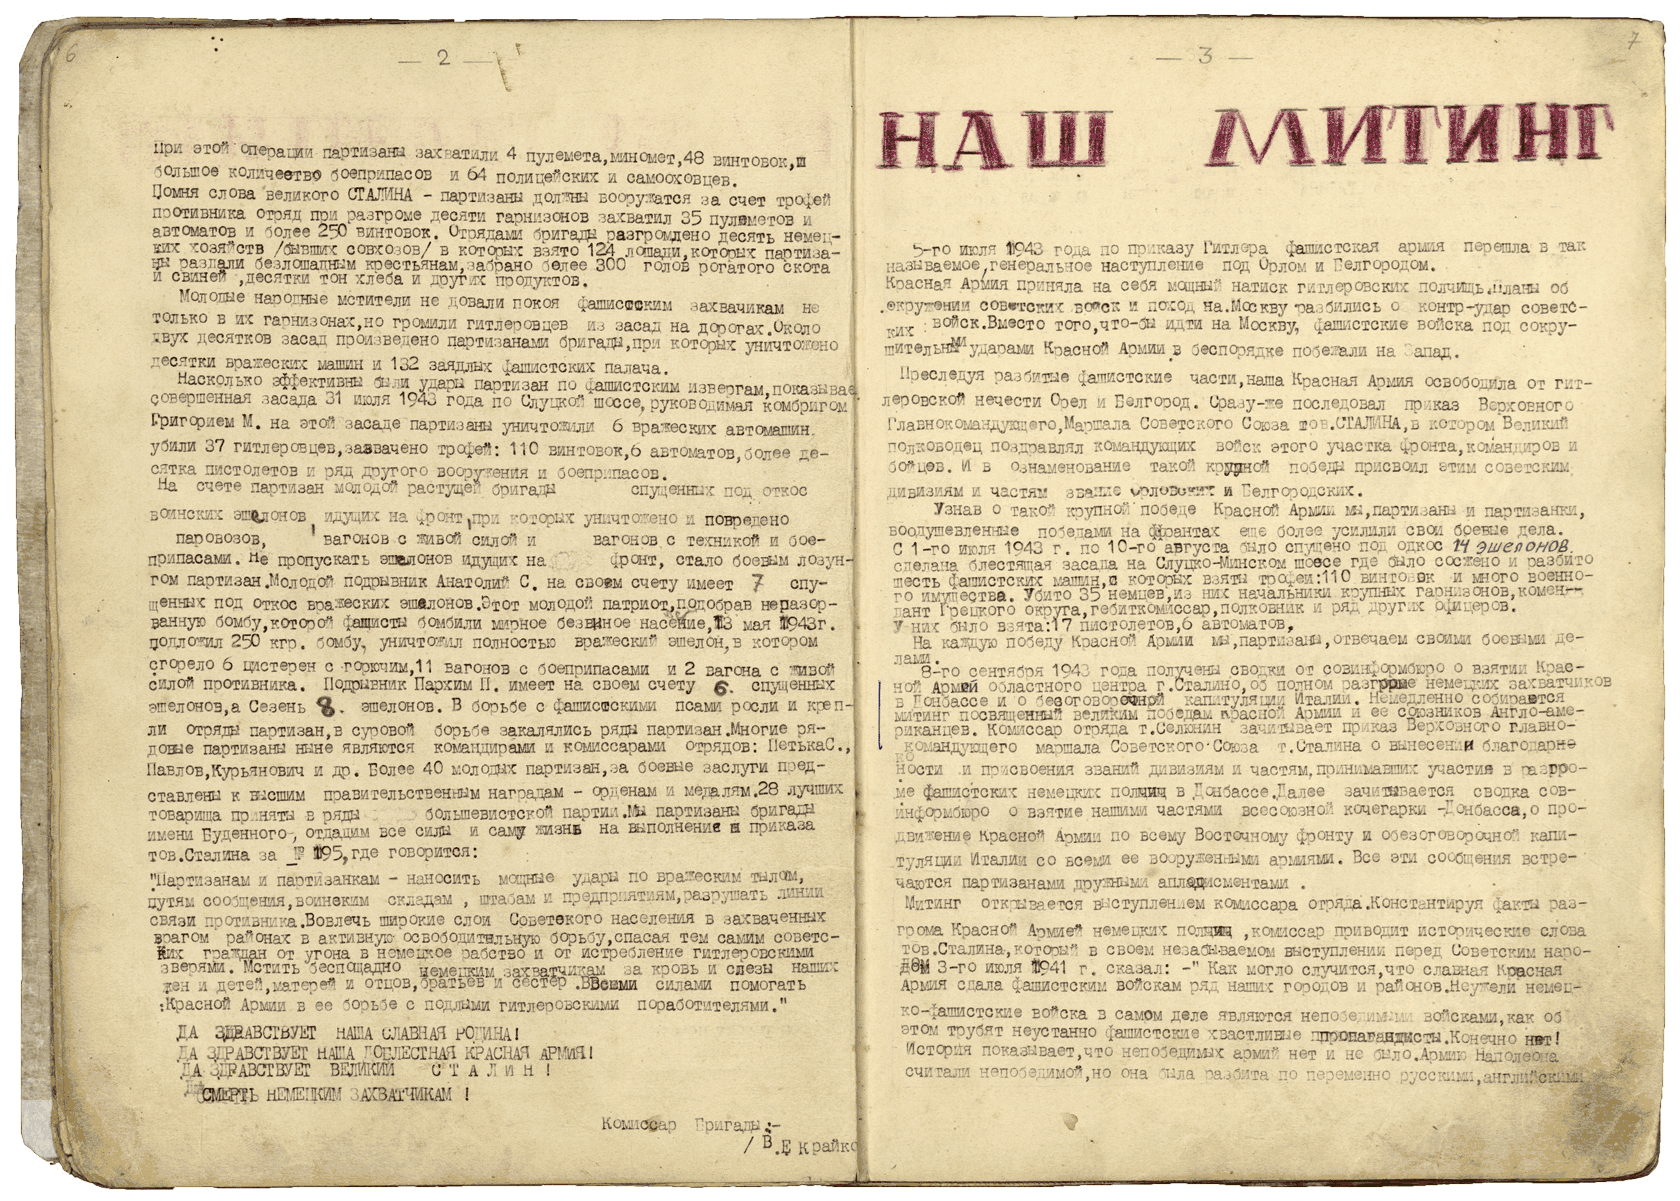 6
— 2 —
При этой операции партизаны захватили 4 пулемета,миномет,48 винтовок,
большое количество боеприпасов и 64 полицейских и самооховцев.
Помня слова великого СТАЛИНА - партизаны должны вооружатся за счет трофей
противника отряд при разгроме десяти гарнизонов захватил 35 пулеметов и
автоматов и более 250 винтовок. Отрядами бригады разгромлено десять немец-
ких хозяйств /бывших совхозов/ в которых взято 124 лошади,которых партиза-
ны раздали безлошадным крестьянам,забрано более 300 голов рогатого скота
и свиней ,десятки тон хлеба и других продуктов.
Молодые народные мстители не довали покоя фашистским захвачикам не
только в их гарнизонах,но громили гитлеровцев из засад на дорогах.Около
двух десятков засад произведено партизанами бригады,при которых уничтожено
десятки вражеских машин и 132 заядлых фашистских палача.
Насколько эффективны были удары партизан по фашистским извергам,показывае
совершенная засада 31 июля 1943 года по Слуцкой шоссе,руководимая комбригом
Григорием М. на этой засаде партизаны уничтожили 6 вражеских автомашин.
убили 37 гитлеровцев,захвачено трофей: 110 винтовок,6 автоматов,более де-
сятка пистолетов и ряд другого вооружения и боеприпасов.
На счете партизан молодой растущей бригады спущенных под откос
воинских эшелонов идущих на фронт,при которых уничтожено и повредено
паровозов, вагонов с живой силой и вагонов с техникой и бое-
припасами. Не пропускать эшелонов идущих на фронт, стало боевым лозун-
гом партизан.Молодой подрывник Анатолий С. на своем счету имеет 7 спу-
щенных под откос вражеских эшелонов.Этот молодой патриот,подобрав неразор-
ванную бомбу,которой фащисты бомбили мирное безвиное насение,13 мая 1943г.
подложил 250 кгр. бомбу, уничтожил полностью вражеский эшелон,в котором
сгорело 6 цистерен с горючим,11 вагонов с боеприпасами и 2 вагона с живой
силой противника. Подрывник Пархим П. имеет на своем счету 6. спущенных
эшелонов,а Сезень 8. эшелонов. В борьбе с фашистскими псами росли и креп-
ли отряды партизан,в суровой борьбе закалялись ряды партизан.Многие ря-
довые партизаны ныне являются командирами и комиссарами отрядов: ПетькаС.,
Павлов,Курьянович и др. Более 40 молодых партизан,за боевые заслуги пред-
ставлены к высшим правительственным наградам - орденам и медалям.28 лучших
товарища приняты в ряды большевистской партии.Мы партизаны бригады
имени Буденного, отдадим все силы и саму жизнь на выполнение приказа
тов.Сталина за № 195,где говорится:
"Партизанам и партизанкам - наносить мощные удары по вражеским тылом,
путям сообщения,воинским складам , штабам и предприятиям,разрушать линии
связи противника.Вовлечь широкие слои Советского населения в захваченных
врагом районах в активную освободительную борьбу,спасая тем самим советс-
ких граждан от угона в немецкое рабство и от истребление гитлеровскими
зверями. Мстить беспощадно немецким захватчикам за кровь и слезы наших
жен и детей,матерей и отцов,братьев и сестер .Всеми силами помогать
Красной Армии в ее борьбе с подлыми гитлеровскими поработителями."
ДА ЗДРАВСТВУЕТ НАША СЛАВНАЯ РОДИНА!
ДА ЗДРАВСТВУЕТ НАША ДОБЛЕСТНАЯ КРАСНАЯ АРМИЯ!
ДА ЗДРАВСТВУЕТ ВЕЛИКИЙ С Т А Л И Н !
СМЕРТЬ НЕМЕЦКИМ ЗАХВАТЧИКАМ !
Комиссар Бригады:-
/ В.Е Крайко
7
— 3 —
НАШ МИТИНГ
5-го июля 1943 года по приказу Гитлера фашистская армия перешла в так
называемое,генеральное наступление под Орлом и Белгородом.
Красная Армия приняла на себя мощный натиск гитлеровских полчищь.Планы об
окружении советских войск и поход на Москву разбились о контр-удар советс-
ких войск.Вместо того,что-бы идти на Москву, фашистские войска под сокру-
шительными ударами Красной Армии в беспорядке побежали на Запад.
Преследуя разбитые фашистские части,наша Красная Армия освободила от гит-
леровской нечести Орел и Белгород. Сразу-же последовал приказ Верховного
Главнокомандующего,Маршала Советского Союза тов.СТАЛИНА,в котором Великий
полководец поздравлял командующих войск этого участка фронта,командиров и
бойцов. И в ознаменование такой крупной победы присвоил этим советским
дивизиям и частям звание Орловских и Белгородских.
Узнав о такой крупной победе Красной Армии мы,партизаны и партизанки,
воодушевленные победами на фронтах еще более усилили свои боевые дела.
С 1-го июля 1943 г. по 10-го августа было спущено под одкос 14 эшелонов.
сделана блестящая засада на Слуцко-Минском шоссе где было сожжено и разбито
шесть фашистских машин,с которых взяты трофеи:110 винтовок и много военно-
го имущества. Убито 35 немцев,из них начальники крупных гарнизонов,комен-
дант Грецкого округа,гебиткомиссар,полковник и ряд других офицеров.
У них было взята:17 пистолетов,6 автоматов,
На каждую победу Красной Армии мы,партизаны,отвечаем своими боевыми де-
лами.
8-го сентября 1943 года получены сводки от совинформбюро о взятии Крас-
ной Армией областного центра г.Сталино,об полном разгроме немецких захватчиков
в Донбассе и о безоговорочной капитуляции Италии. Немедленно собирается
митинг посвященный великим победам Красной Армии и ее союзников Англо-аме-
риканцев. Комиссар отряда т.Селюнин зачитывает приказ Верховного главно-
командующего маршала Советского Союза т.Сталина о вынесении благодарно
ности и присвоения званий дивизиям и частям,принимавших участие в разгро-
ме фашистских немецких полчищ в Донбассе.Далее зачитывается сводка сов-
информбюро о взятие нашими частями всесоюзной кочегарки -Донбасса,о про-
движение Красной Армии по всему Восточному фронту и обезоговорочной капи-
туляции Италии со всеми ее вооруженными армиями. Все эти сообщения встре-
чаются партизанами дружными апладисментами .
Митинг открывается выступлением комиссара отряда.Константируя факты раз-
грома Красной Армией немецких полчищ ,комиссар приводит исторические слова
тов.Сталина,который в своем незабываемом выступлении перед Советским наро-
дом 3-го июля 1941 г. сказал: -" Как могло случится,что славная Красная
Армия сдала фашистским войскам ряд наших городов и районов.Неужели немец-
ко-фашистские войска в самом деле являются непобедимыми войсками,как об
этом трубят неустанно фашистские хвастливые пропагандисты.Конечно нет!
История показывает,что непобедимых армий нет и не было.Армию Наполеона
считали непобедимой,но она была разбита по переменно русскими,английскими